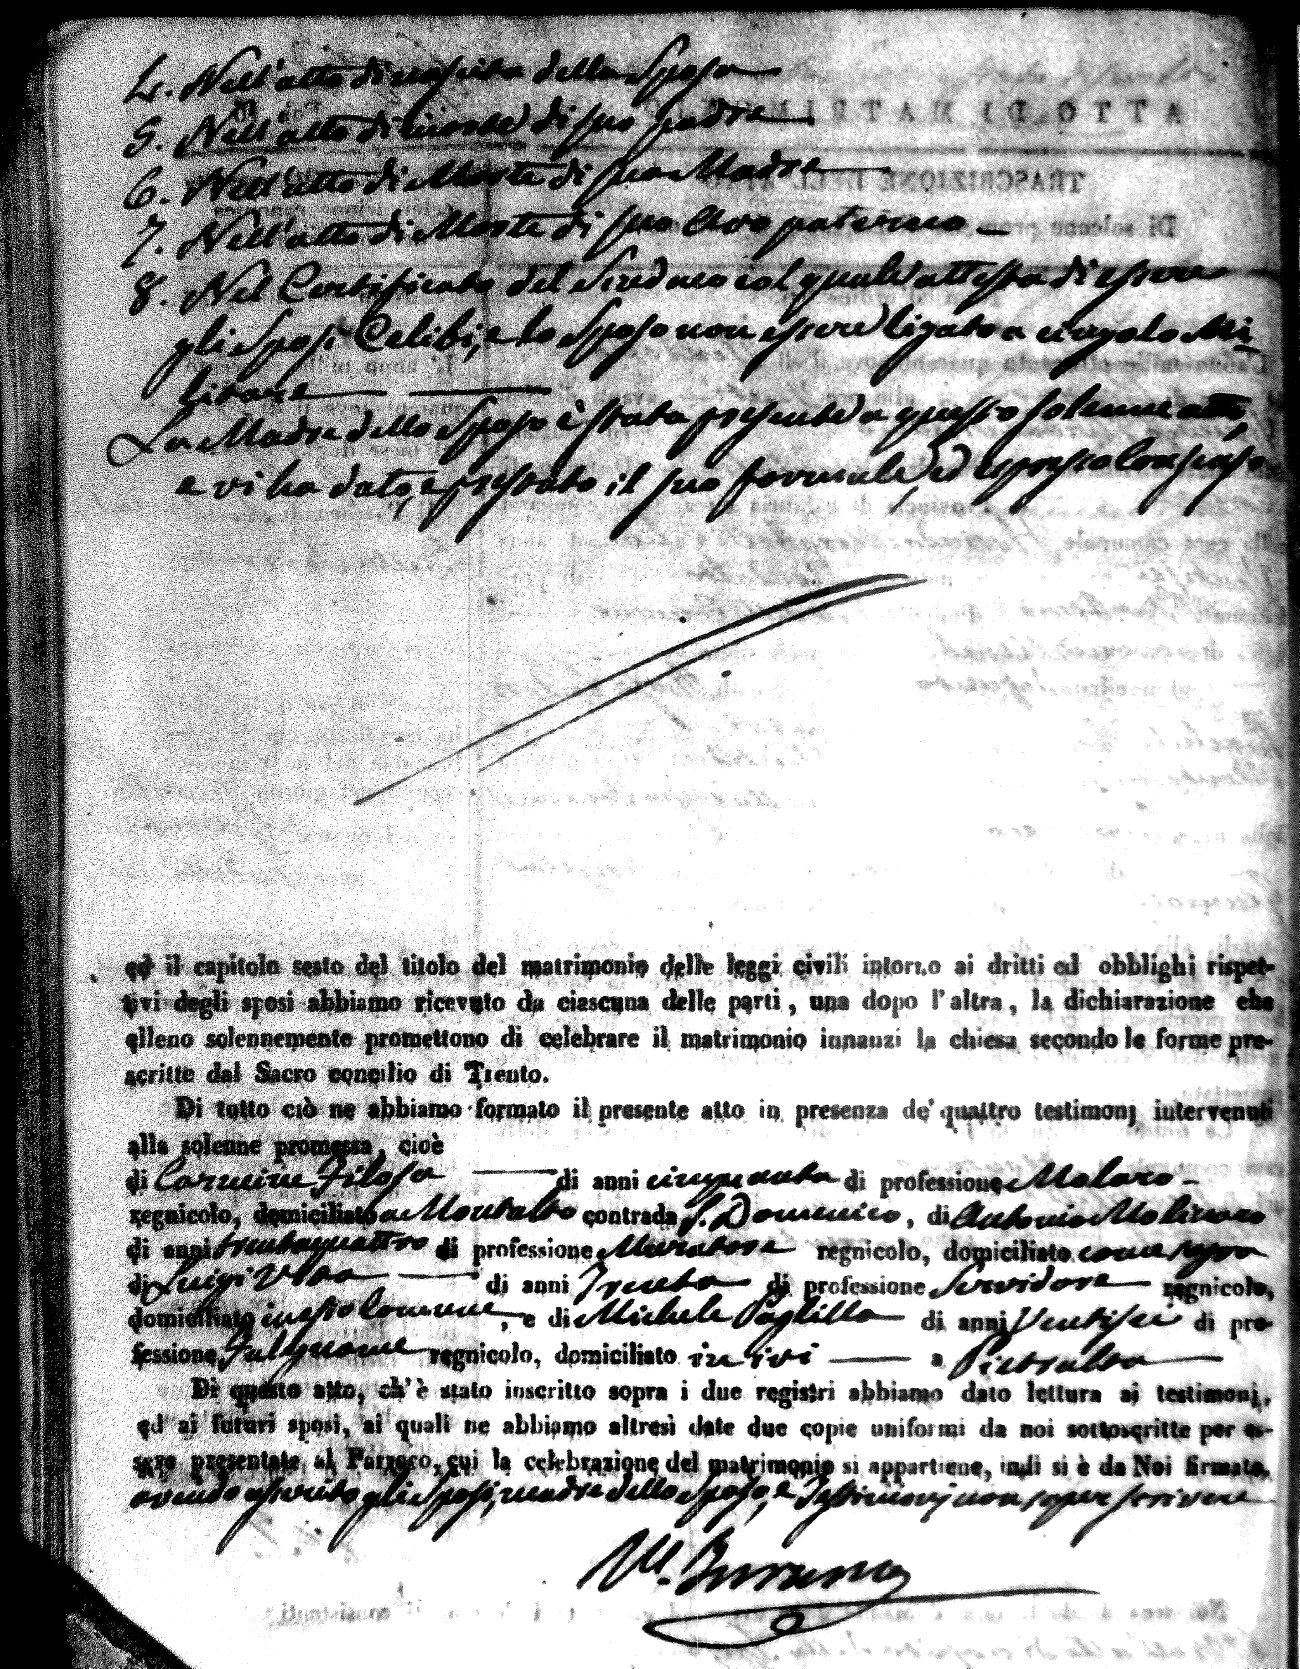 4. Nell'atto di nascita della Sposa
5. Nell'atto di morte di suo padre
6. Nell'atto di Morte di sua Madre
7. Nell'atto di Morte di suo Avo paterno
8. Nel Certificato del Sindaco col quale attesta di essere
gli Sposi Celibi, e lo Sposo non essere ligato a vincolo Mi-
litare
La Madre dello Sposo è stata presente a questo solenne atto,
e vi ha dato, e prestato il suo formale, ed espresso consenso
ed il capitolo sesto del titolo del matrimonio delle leggi civili intorno ai dritti ed obblighi rispet-
tivi degli sposi abbiamo ricevuto da ciascuna delle parti, una dopo l'altra, la dichiarazione che
elleno solennemente promettono di celebrare il matrimonio innanzi la chiesa secondo le forme pre-
scritte dal Sacro concilio di Trento.
Di tutto ciò ne abbiamo formato il presente atto in presenza de' quattro testimonj intervenuti
alla solenne promessa, cioè
di Carmine Filosa di anni cinquanta di professione Molaro
regnicolo, domiciliato a Montalto contrada S. Domenico, di Antonio Molinaro
di anni trentaquattro di professione Muratore regnicolo, domiciliato come sopra
di Luigi di anni Trenta di professione Servidore regnicolo,
domiciliato in questo Comune, e di Michele di anni Ventisei di pro-
fessione Falegname regnicolo, domiciliato in ivi a Pietralta
Di questo atto, ch'è stato inscritto sopra i due registri abbiamo dato lettura ai testimoni,
ed ai futuri sposi, ai quali ne abbiamo altresì date due copie uniformi da noi sottoscritte per es-
sere presentate al Parroco, cui la celebrazione del matrimonio si appartiene, indi si è da Noi firmato,
avendo asserito gli Sposi, madre dello Sposo, e Testimonj non saper scrivere